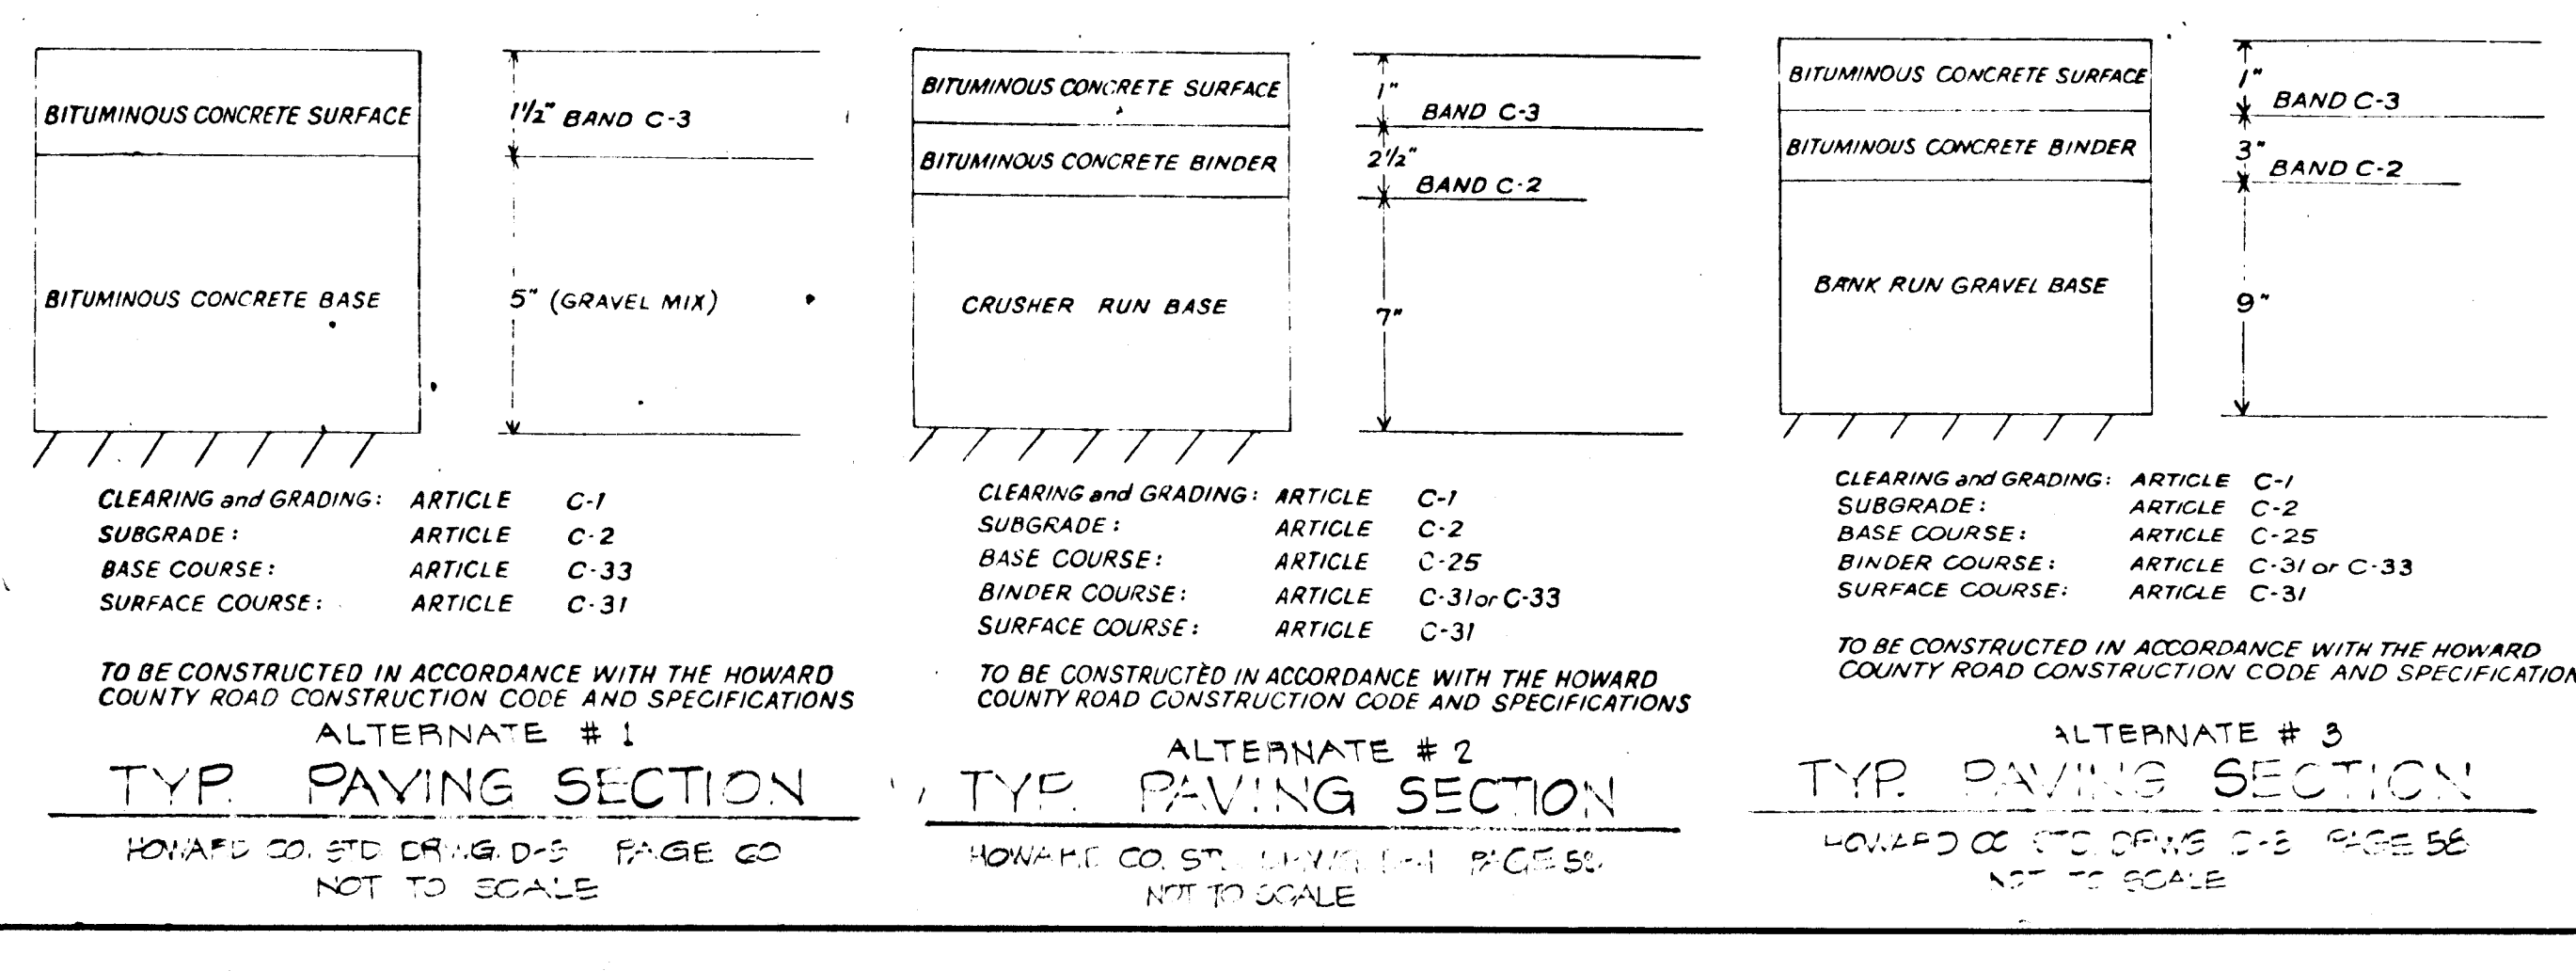 BITUMINOUS CONCRETE SURFACE
1 1/2" BAND C-3
BITUMINOUS CONCRETE BASE
5" (GRAVEL MIX)
CLEARING and GRADING: ARTICLE C-1
SUBGRADE: ARTICLE C-2
BASE COURSE: ARTICLE C-33
SURFACE COURSE: ARTICLE C-31
TO BE CONSTRUCTED IN ACCORDANCE WITH THE HOWARD
COUNTY ROAD CONSTRUCTION CODE AND SPECIFICATIONS
ALTERNATE # 1
TYP. PAVING SECTION
HOWARD CO. STD. DRWG. D-5 PAGE 60
NOT TO SCALE
BITUMINOUS CONCRETE SURFACE
1"
BAND C-3
BITUMINOUS CONCRETE BINDER
2 1/2"
BAND C-2
CRUSHER RUN BASE
7"
CLEARING and GRADING: ARTICLE C-1
SUBGRADE: ARTICLE C-2
BASE COURSE: ARTICLE C-25
BINDER COURSE: ARTICLE C-31 or C-33
SURFACE COURSE: ARTICLE C-31
TO BE CONSTRUCTED IN ACCORDANCE WITH THE HOWARD
COUNTY ROAD CONSTRUCTION CODE AND SPECIFICATIONS
ALTERNATE # 2
TYP. PAVING SECTION
HOWARD CO. PAGE
NOT TO SCALE
BITUMINOUS CONCRETE SURFACE
1"
BAND C-3
BITUMINOUS CONCRETE BINDER
3"
BAND C-2
BANK RUN GRAVEL BASE
9"
CLEARING and GRADING: ARTICLE C-1
SUBGRADE: ARTICLE C-2
BASE COURSE: ARTICLE C-25
BINDER COURSE: ARTICLE C-31 or C-33
SURFACE COURSE: ARTICLE C-31
TO BE CONSTRUCTED IN ACCORDANCE WITH THE HOWARD
COUNTY ROAD CONSTRUCTION CODE AND SPECIFICATION
ALTERNATE # 3
TYP. PAVING SECTION
HOWARD CO. STD. DRWG D-3 PAGE 58
NOT TO SCALE